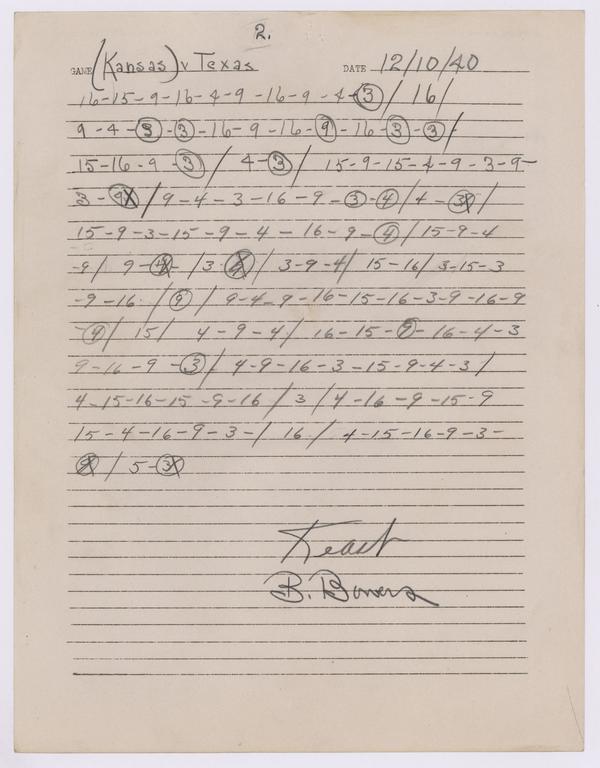 2.
GAME (Kansas) v Texas DATE 12/10/40
16-15-9-16-4-9-16-9-4-3/16/
9-4-3-3-16-9-16-9-16-3-3/
15-16-9-3/4-3/15-9-15-4-9-3-9-
3-9X/9-4-3-16-9-3-4/4-3X/
15-9-3-15-9-4-16-9-4/15-9-4
-9/9-/3-/3-9-4/15-16/3-15-3
-9-16/9/9-4-9-16-15-16-3-9-16-9
-4/15/4-9-4/16-15-9-16-4-3
9-16-9-3/4-9-16-3-15-9-4-3/
4-15-16-15-9-16/3/4-16-9-15-9
15-4-16-9-3-/16/4-15-16-9-3-
/5-3X
B. Bowers